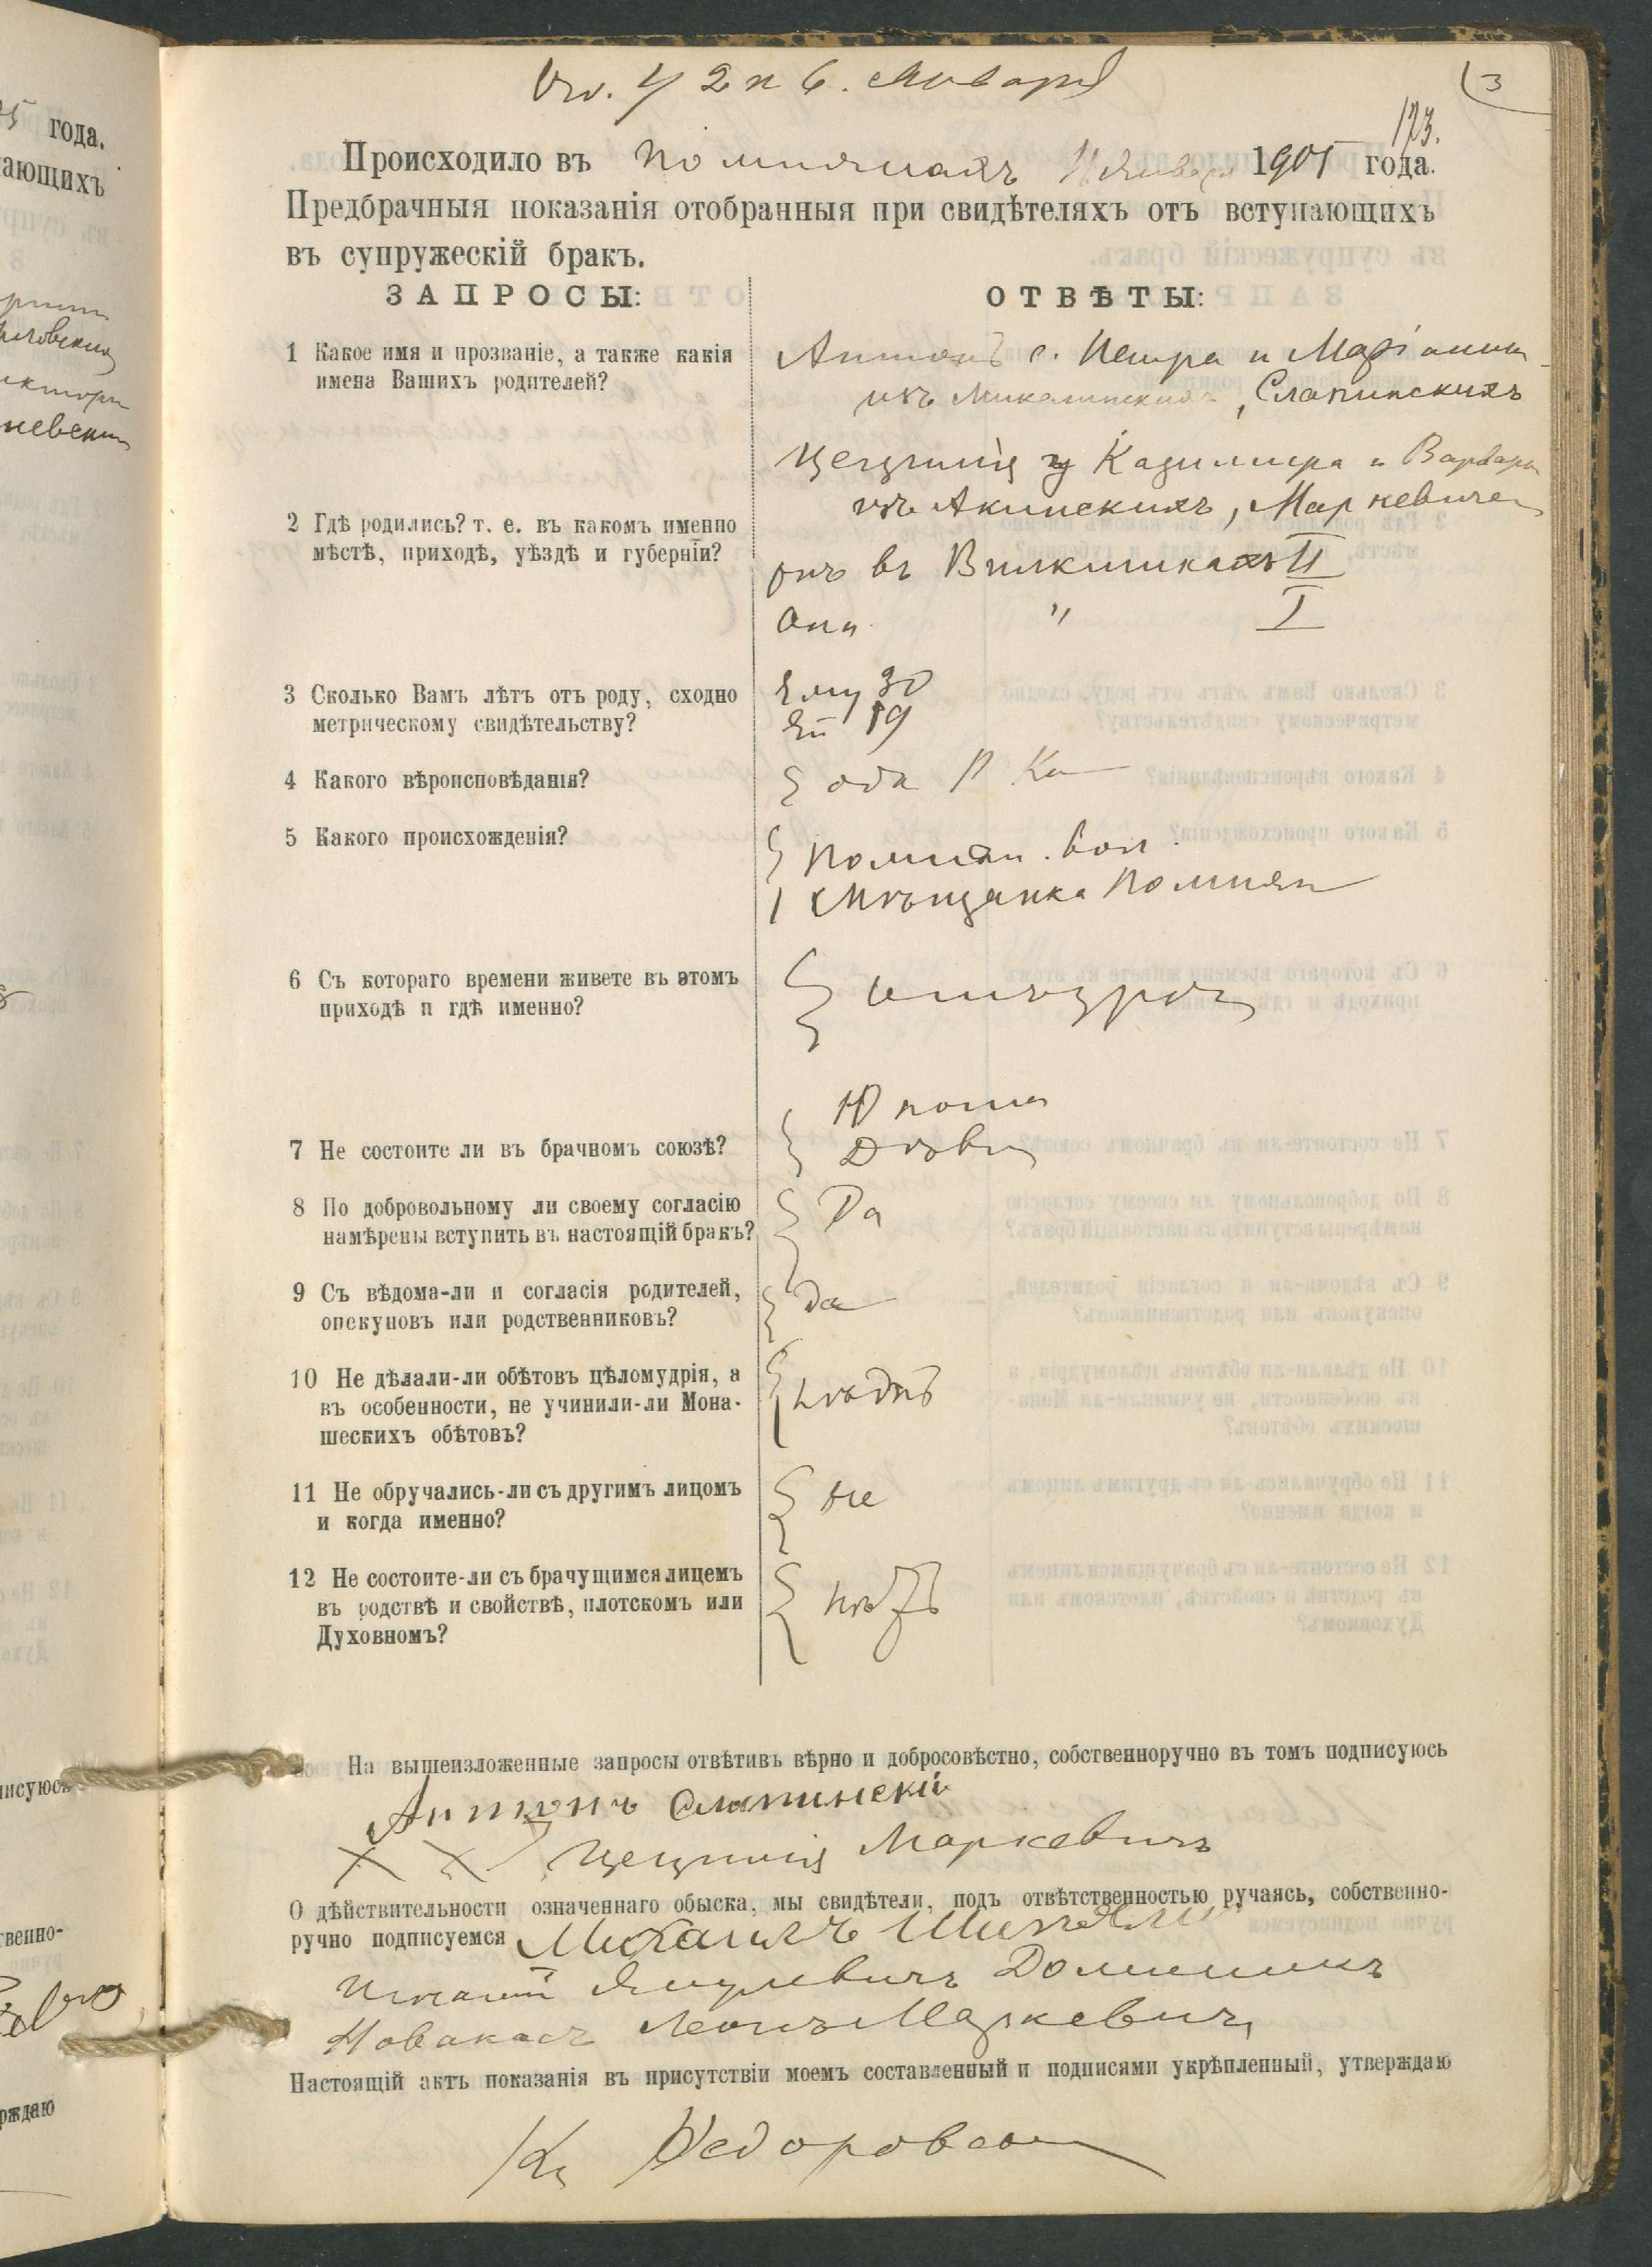 2 и 6. Января
3
173.
Происходило въ Помпянахъ Января 1905 года.
Предбрачныя показанія отобранныя при свидѣтеляхъ отъ вступающихъ
въ супружескій бракъ.
ЗАПРОСЫ:
ОТВѢТЫ:
1 Какое имя и прозваніе, а также какія
имена Вашихъ родителей?
Антонъ с. Петра и Маріанны
изъ Микелинскихъ, Слапинскихъ
Цецилія Казимира и Варвары
изъ Акинскихъ, Маркевичей
2 Гдѣ родились? т. е. въ какомъ именно
мѣстѣ, приходѣ, уѣздѣ и губерніи?
онъ въ Вилкишкахъ II
Она " I
3 Сколько Вамъ лѣтъ отъ роду, сходно
метрическому свидѣтельству?
Ему 30
Ей 19
4 Какого вѣроисповѣданія?
оба Р К
5 Какого происхожденія?
Помпян. вол.
Мѣщанка Помпян
6 Съ котораго времени живете въ этомъ
приходѣ и гдѣ именно?
7 Не состоите ли въ брачномъ союзѣ?
Юноша
Дѣва
8 По добровольному ли своему согласію
намѣрены вступить въ настоящій бракъ?
Да
9 Съ вѣдома-ли и согласія родителей,
опекуновъ или родственниковъ?
да
10 Не дѣлали-ли обѣтовъ цѣломудрія, а
въ особенности, не учинили-ли Мона-
шескихъ обѣтовъ?
11 Не обручались-ли съ другимъ лицомъ
и когда именно?
Не
12 Не состоите-ли съ брачущимся лицемъ
въ родствѣ и свойствѣ, плотскомъ или
Духовномъ?
Нѣтъ
На вышеизложенные запросы отвѣтивъ вѣрно и добросовѣстно, собственноручно въ томъ подписуюсь
Антонъ Слапинскій
X X Цецилія Маркевичъ
О дѣйствительности означеннаго обыска, мы свидѣтели, подъ отвѣтственностью ручаясь, собственно-
ручно подписуемся Михаилъ
Игнатій Янулевичъ Доминикъ
Новакасъ Леонъ Маркевичъ
Настоящій актъ показанія въ присутствіи моемъ составленный и подписями укрѣпленный, утверждаю
Кс Федорович